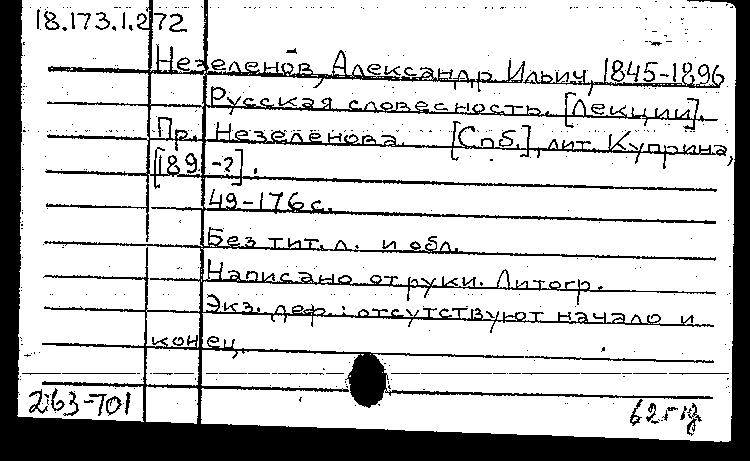 18.173.1.272
Незеленов, Александр Ильич, 1845-1896
Русская словесность. [Лекции].
Пр. Незеленова. [Спб.], лит. Куприна,
[189-?].
49-176 с.
Без тит. л. и обл.
Написано от руки. Литогр.
Экз. деф.: отсутствуют начало и
конец.
263-701